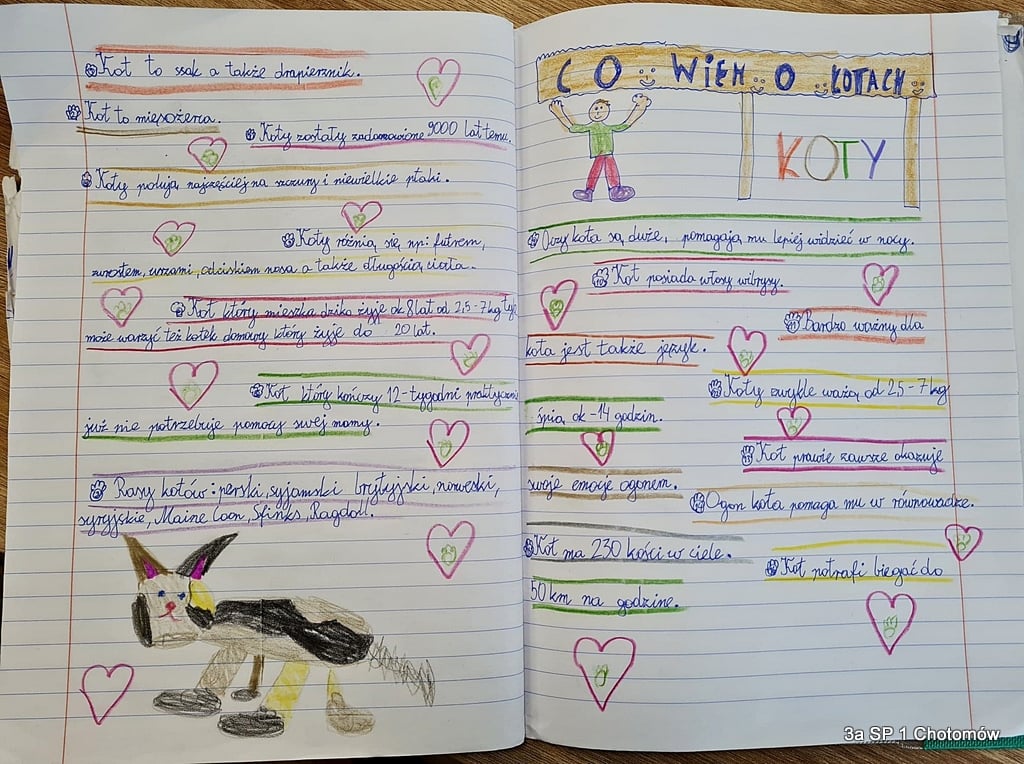 Kot to ssak a także drapieżnik.
Kot to mięsożerca.
Koty zostały zadomowione 9000 lat temu.
Koty polują najczęściej na szczury i niewielkie ptaki.
Koty różnią się np: futrem,
wzrostem, uszami, odciskiem nosa a także długością ciała.
Kot który mieszka dziko żyje ok 8 lat od 2,5-7 kg tyle
może warzyć też kotek domowy który żyje do 20 lat.
Kot który kończy 12-tygodni praktycznie
już nie potrzebuje pomocy swej mamy.
Rasy kotów: perski, syjamski brytyjski, norweski,
syryjskie, Maine Coon, Sfinks, Ragdoll.
CO WIEM O KOTACH
KOTY
Oczy kota są duże, pomagają mu lepiej widzieć w nocy.
Kot posiada włosy wibrysy.
Bardzo ważny dla
kota jest także język.
Koty zwykle ważą od 2,5-7 kg
śpią ok -14 godzin.
Kot prawie zawsze okazuje
swoje emocje ogonem.
Ogon kota pomaga mu w równowadze.
Kot ma 230 kości w ciele.
Kot potrafi biegać do
50 km na godzine.
3a SP 1 Chotomów